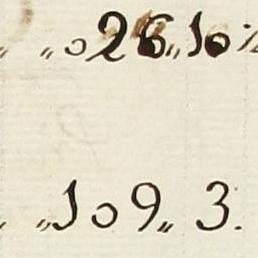 „ „026„10
„ „109„ 3.